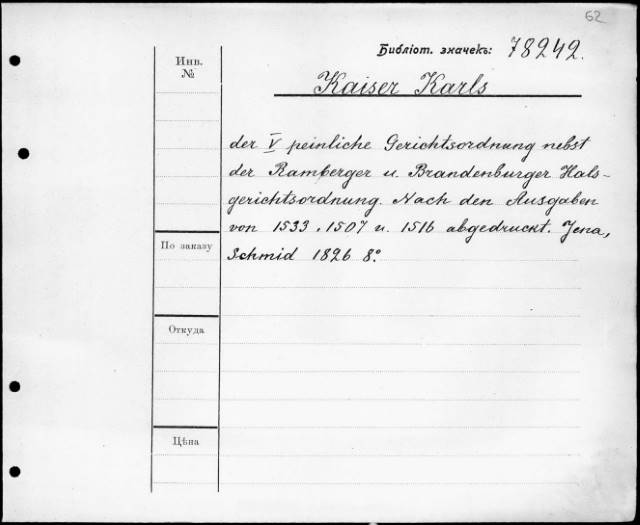 62
Библіот. значекъ: 78242.
Инв.
№
Kaiser Karls
der V peinliche Gerichtsordnung nebst
der Ramberger u. Brandenburger Hals-
gerichtsordnung. Nach den Ausgaben
von 1533, 1507 u. 1516 abgedruckt. Jena,
По заказу
Schmid 1826 8°.
Откуда
Цѣна